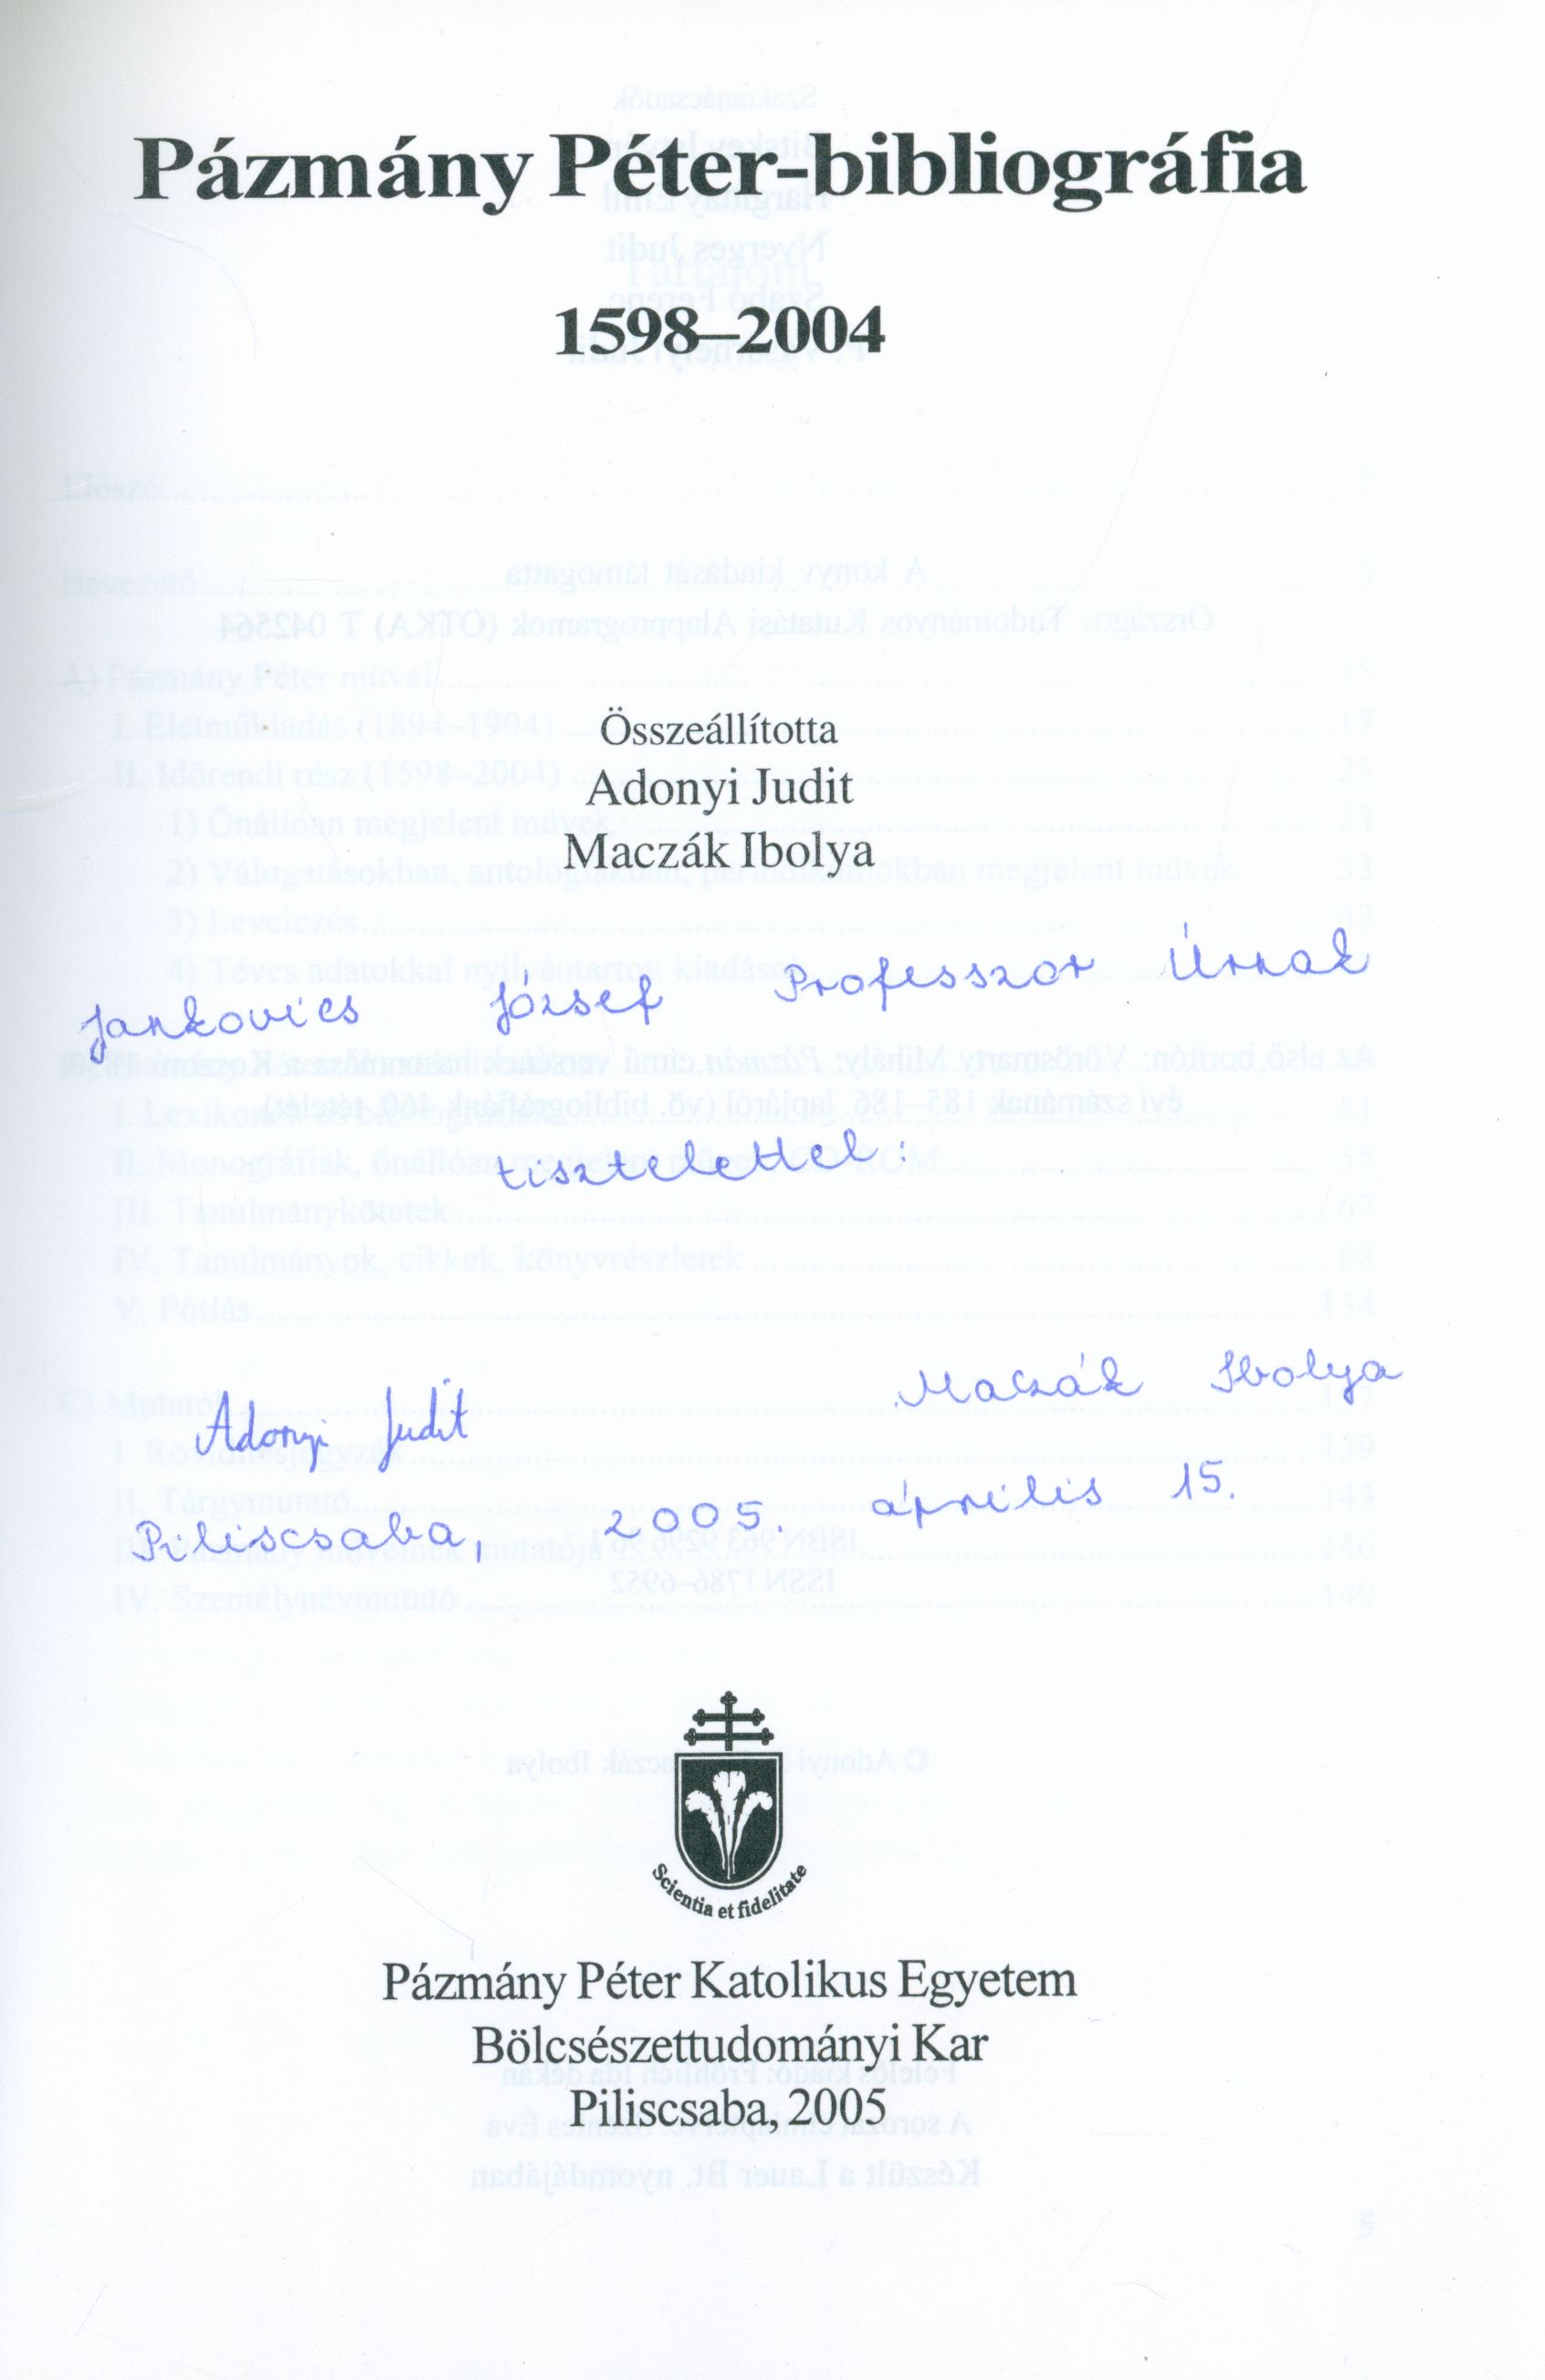 Pázmány Péter-bibliográfia
1598–2004
Összeállította
Adonyi Judit
Maczák Ibolya
Jankovics József Professzor Úrnak
tisztelettel:
Adonyi Judit
Maczák Ibolya
Piliscsaba, 2005. április 15.
Scientia et fidelitate
Pázmány Péter Katolikus Egyetem
Bölcsészettudományi Kar
Piliscsaba, 2005